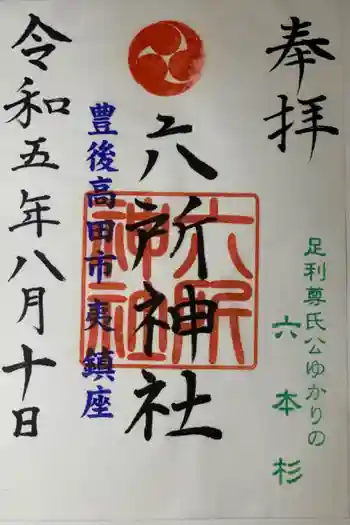 奉拝
足利尊氏公ゆかりの
六本杉
六所神社
六所
神社
豊後高田市夷鎮座
令和五年八月十日